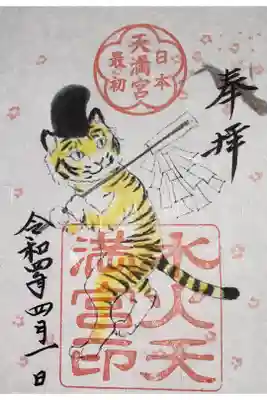 日本
天満宮
最初
奉拝
水火天
満宮印
令和四年四月一日